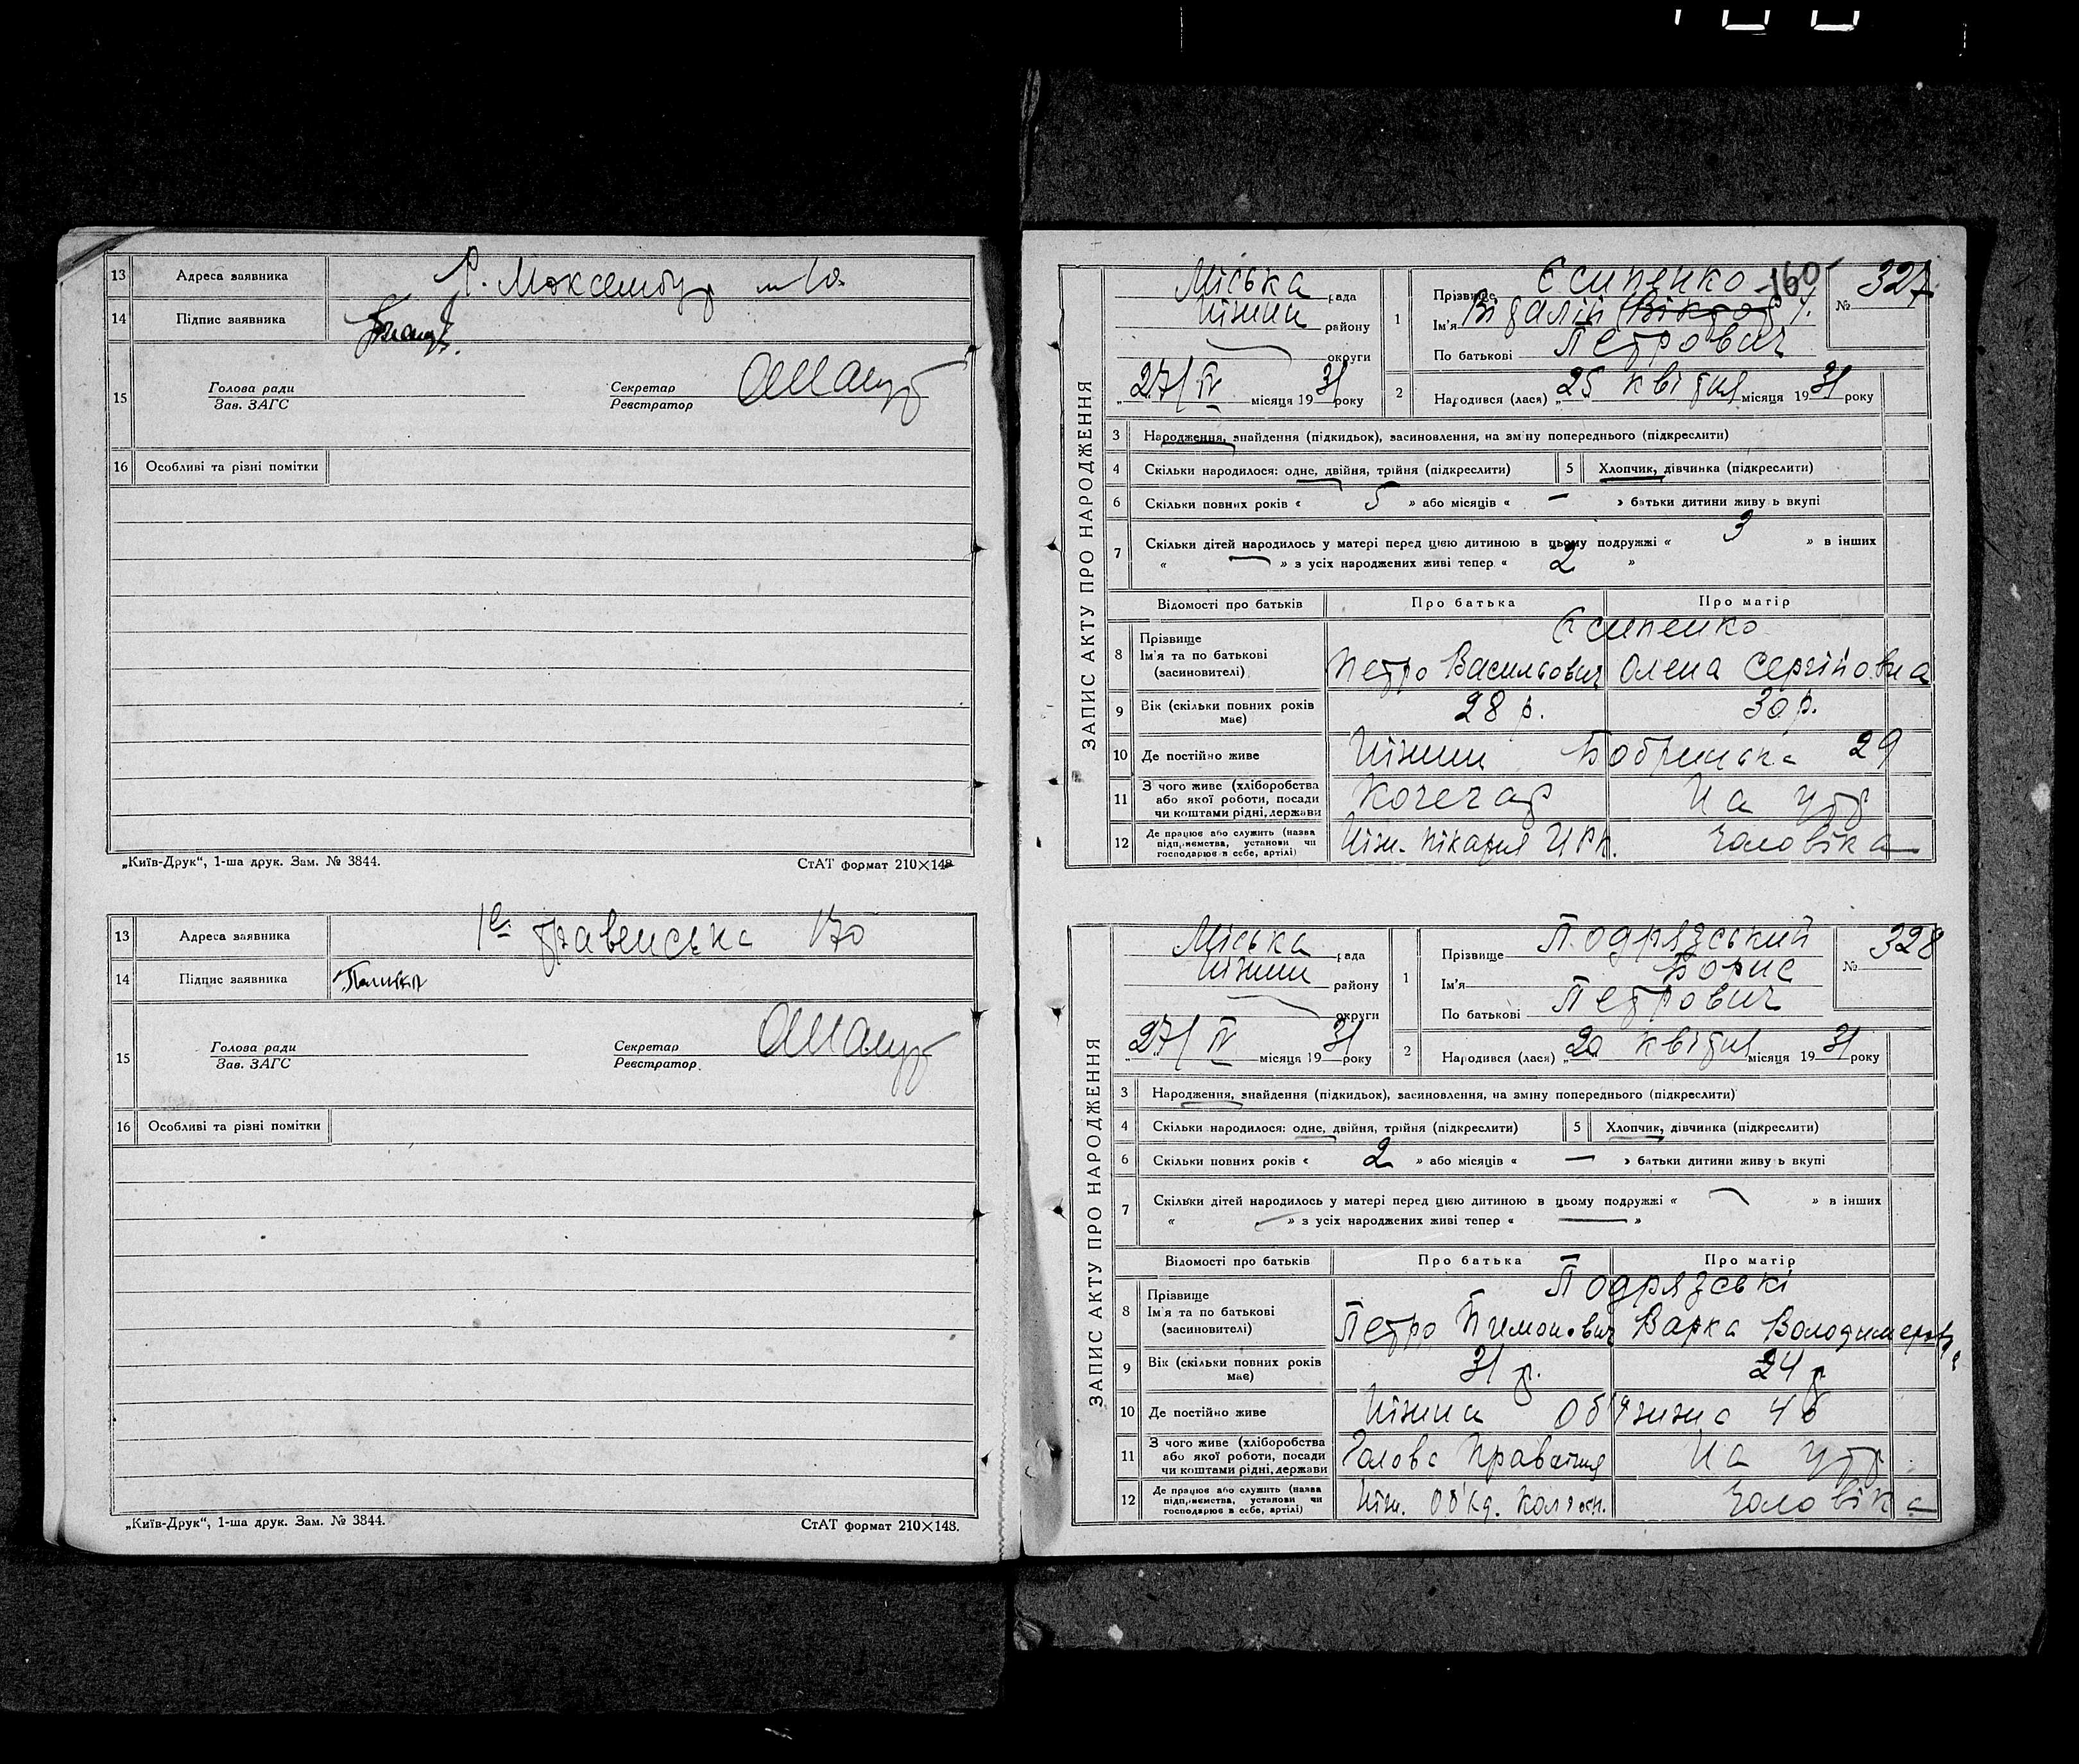 13 Адреса заявника
14 Підпис заявника
15 Голова ради
Зав. ЗАГС
Секретар
Реєстратор
16 Особливі та різні помітки
„Київ-Друк“, 1-ша друк. Зам. № 3844.
СтАТ формат 210×148
13 Адреса заявника 170
14 Підпис заявника
15 Голова ради
Зав. ЗАГС
Секретар
Реєстратор
16 Особливі та різні помітки
„Київ-Друк“, 1-ша друк. Зам. № 3844.
СтАТ формат 210×148.
160
ЗАПИС АКТУ ПРО НАРОДЖЕННЯ
Міська рада
Ніжин району
округи
„27/IV місяця 1931 року
1 Прізвище Єсипенко
Ім'я Віталій Віктор
По батькові Петрович
№ 327
2 Народився (лася) „25 квітня місяця 1931 року
3 Народження, знайдення (підкидьок), засиновлення, на зміну попереднього (підкреслити)
4 Скільки народилося: одне, двійня, трійня (підкреслити)
5 Хлопчик, дівчинка (підкреслити)
6 Скільки повних років « 5 » або місяців « — » батьки дитини живуть вкупі
7 Скільки дітей народилось у матері перед цією дитиною в цьому подружжі « 3 » в інших
« — » з усіх народжених живі тепер « 2 »
Відомості про батьків Про батька Про матір
8 Прізвище Єсипенко
Ім'я та по батькові Петро Васильович Олена Сергіївна
(засиновителі)
9 Вік (скільки повних років має) 28 р. 30 р.
10 Де постійно живе Ніжин 29
11 З чого живе (хліборобства
або якої роботи, посади
чи коштами рідні, держави Кочегар На утр
12 Де працює або служить (назва
підприємства, установи чи
господарює в себе, артілі) Ніж. чоловіка
ЗАПИС АКТУ ПРО НАРОДЖЕННЯ
Міська рада
Ніжин району
округи
„27/IV місяця 1931 року
1 Прізвище Подрязський
Ім'я Борис
По батькові Петрович
№ 328
2 Народився (лася) „20 квітня місяця 1931 року
3 Народження, знайдення (підкидьок), засиновлення, на зміну попереднього (підкреслити)
4 Скільки народилося: одне, двійня, трійня (підкреслити)
5 Хлопчик, дівчинка (підкреслити)
6 Скільки повних років « 2 » або місяців « — » батьки дитини живуть вкупі
7 Скільки дітей народилось у матері перед цією дитиною в цьому подружжі « — » в інших
« — » з усіх народжених живі тепер « — »
Відомості про батьків Про батька Про матір
8 Прізвище Подрязські
Ім'я та по батькові Петро Пимонович Варка Володимеровна
(засиновителі)
9 Вік (скільки повних років має) 31 р. 24 р
10 Де постійно живе Ніжин
11 З чого живе (хліборобства
або якої роботи, посади
чи коштами рідні, держави Голова Правління На утр
12 Де працює або служить (назва
підприємства, установи чи
господарює в себе, артілі) Ніж. чоловіка